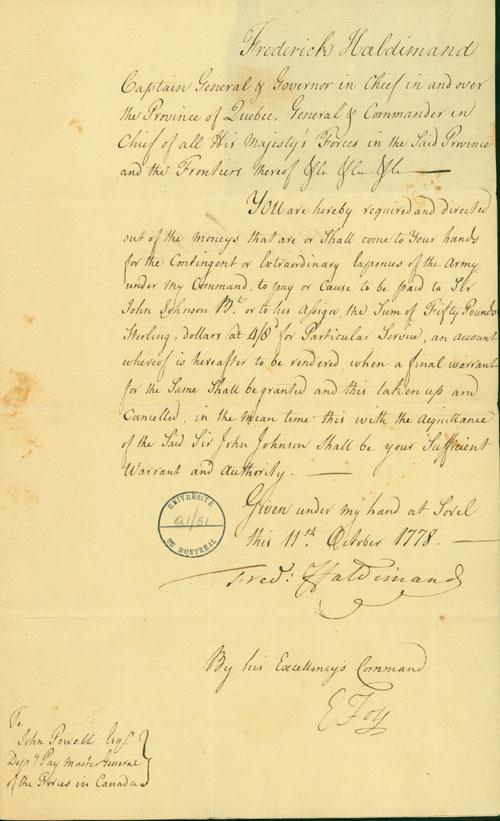 Frederick Haldimand
Captain General & Governor in Chief in and over
the Province of Quebec, General & Commander in
Chief of all His Majesty's Forces in the Said Province
and the Frontiers thereof &c &c &c
You are hereby required and directed
out of the moneys that are or Shall come to Your hands
for the Contingent or Extraordinary Expences of the Army
under my Command, to pay or Cause to be paid to Sir
John Johnson Bt. or to his Assign, the Sum of Fifty Pounds
Sterling, dollars at 4/8d for Particular Service, an account
whereof is hereafter to be rendered, when a final warrant
for the Same Shall be granted and this taken up and
Cancelled, in the mean time this with the Aquittance
of the Said Sir John Johnson Shall be your Sufficient
Warrant and Authority.
Given under my hand at Sorel
this 11th October 1778.
Fred: Haldimand
UNIVERSITÉ
DE MONTRÉAL
By his Excellency's Command
E Foy
To
John Powell Esqr.
Depy. Pay Master General
of the Forces in Canada